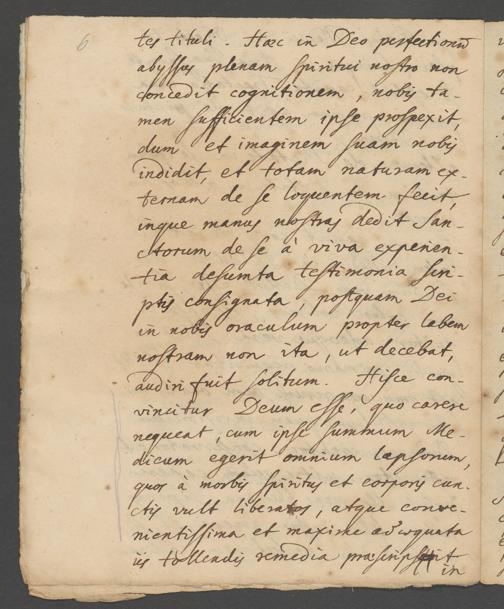 6
tes tituli. Haec in Deo perfectionũ
abyssus plenam spiritui nostro non
concedit cognitionem, nobis ta-
men sufficientem ipse prospexit,
dum et imaginem suam nobis
indidit, et totam naturam ex-
ternam de se loquentem fecit,
inque manus nostras dedit San-
ctorum de se à viva experien-
tia desumta testimonia scri-
ptis consignata, postquam Dei
in nobis oraculum propter labem
nostram non ita, ut decebat,
audiri fuit solitum. Hisce con-
vincitur Deum esse, quo carere
nequeat, cum ipse summum Me-
dicum egerit omnium lapsorum,
quos à morbis spiritus et corporis cun-
ctis vult liberatos, atque conve-
nientissima et maxime adaequata
iis tollendis remedia praescripserit
in